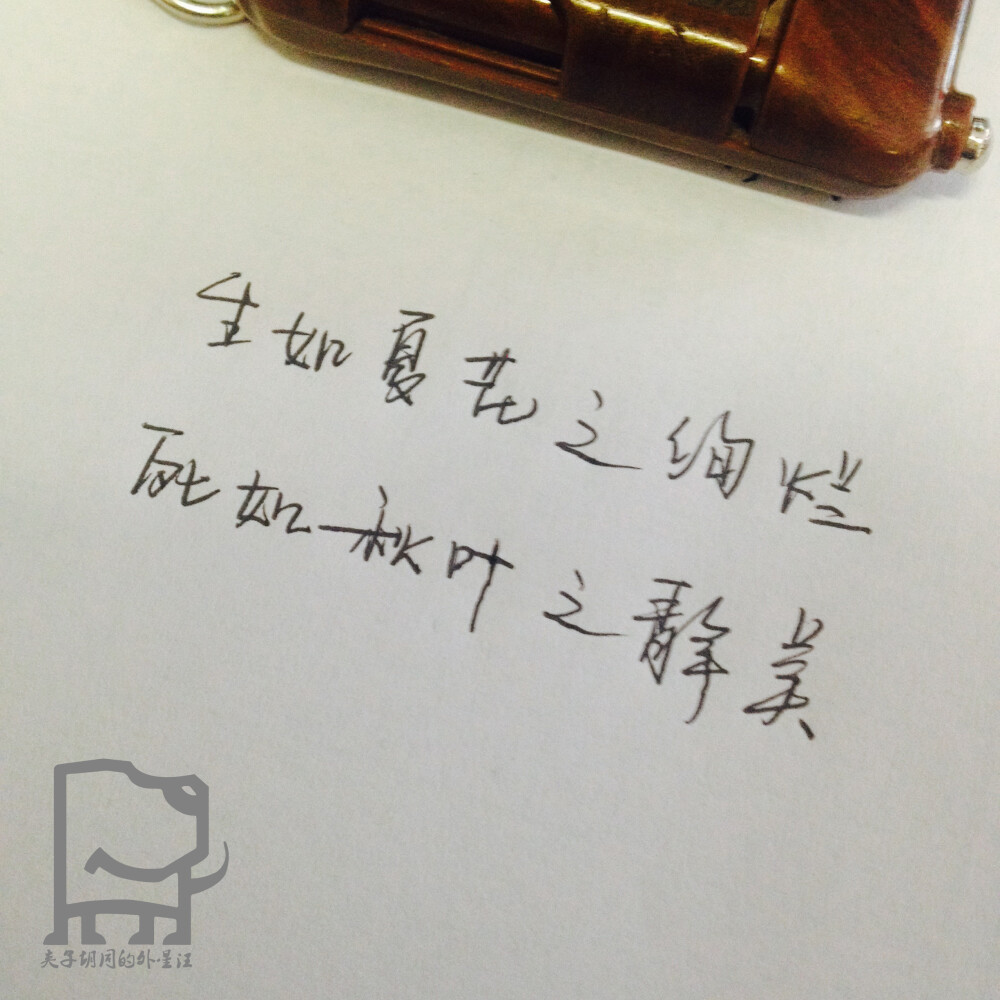 生如夏花之绚烂
死如秋叶之静美
夹子胡同的外星汪